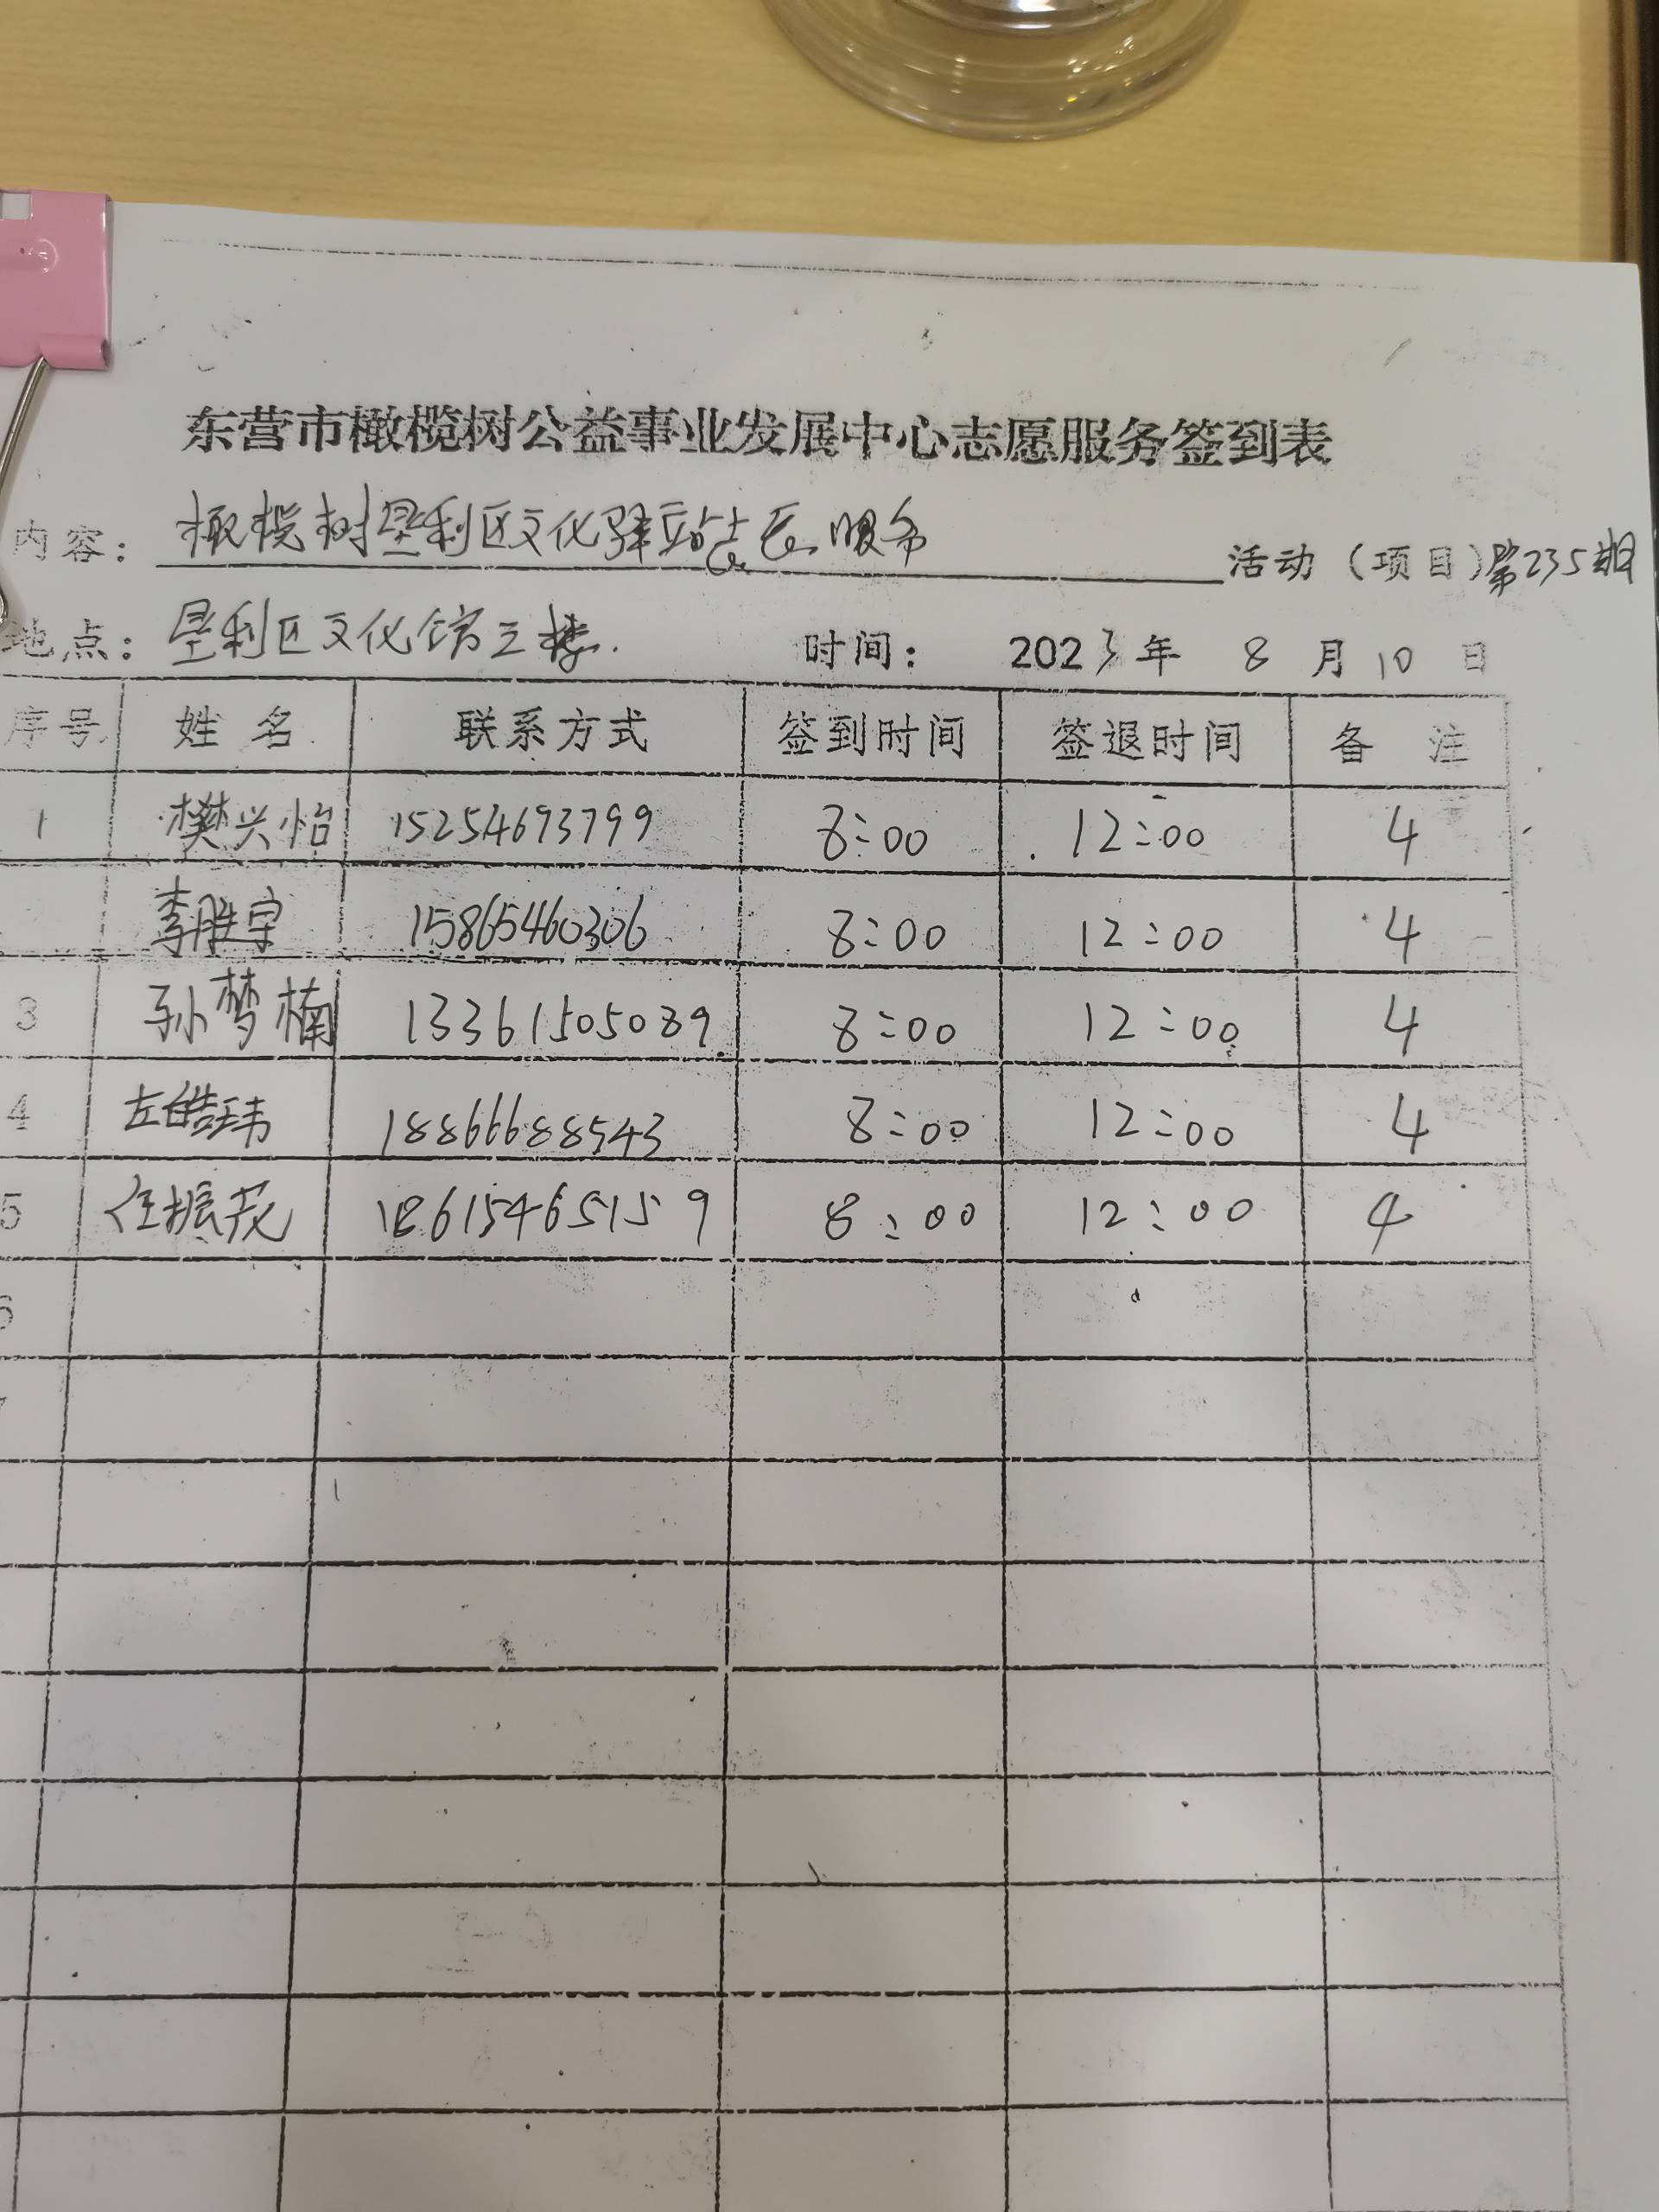 东营市橄榄树公益事业发展中心志愿服务签到表
内容：橄榄树垦利区文化驿站志愿服务 活动（项目）第235期
地点：垦利区文化馆三楼. 时间： 2023年 8 月 10 日
序号 姓 名 联系方式 签到时间 签退时间 备 注
1 樊兴怡 15254693799 8:00 12:00 4
李胜宇 15865460306 8:00 12:00 4
3 孙梦楠 13361505089 8:00 12:00 4
4 左皓玮 18866688543 8:00 12:00 4
5 任振茂 18615465159 8:00 12:00 4
6